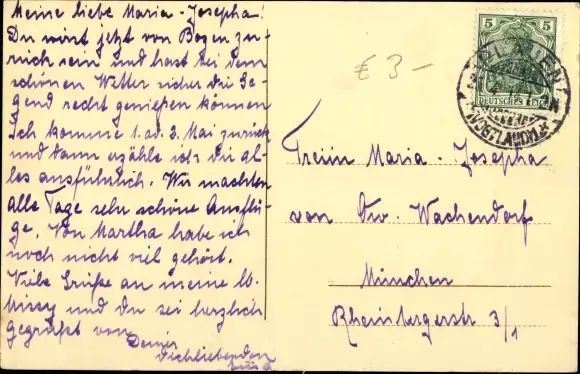 Meine liebe Maria-Josepha!
Du wirst jetzt von Bozen zu-
rück sein und hast bei dem
schönen Wetter sicher die Ge-
gend recht genießen können
Ich komme 1. od. 2. Mai zurück
und dann erzähle ich dir al-
les ausführlich. Wir machten
alle Tage sehr schöne Ausflü-
ge. Von Martha habe ich
noch nicht viel gehört.
Viele Grüße an meine lb.
Missy und du sei herzlich
gegrüßt von
Deiner
Dichliebenden
€ 3-
5 5
DEUTSCHES REICH
Freiin Maria-Josepha
von Ow. Wachendorf
München
Rheinbergerstr 3/1